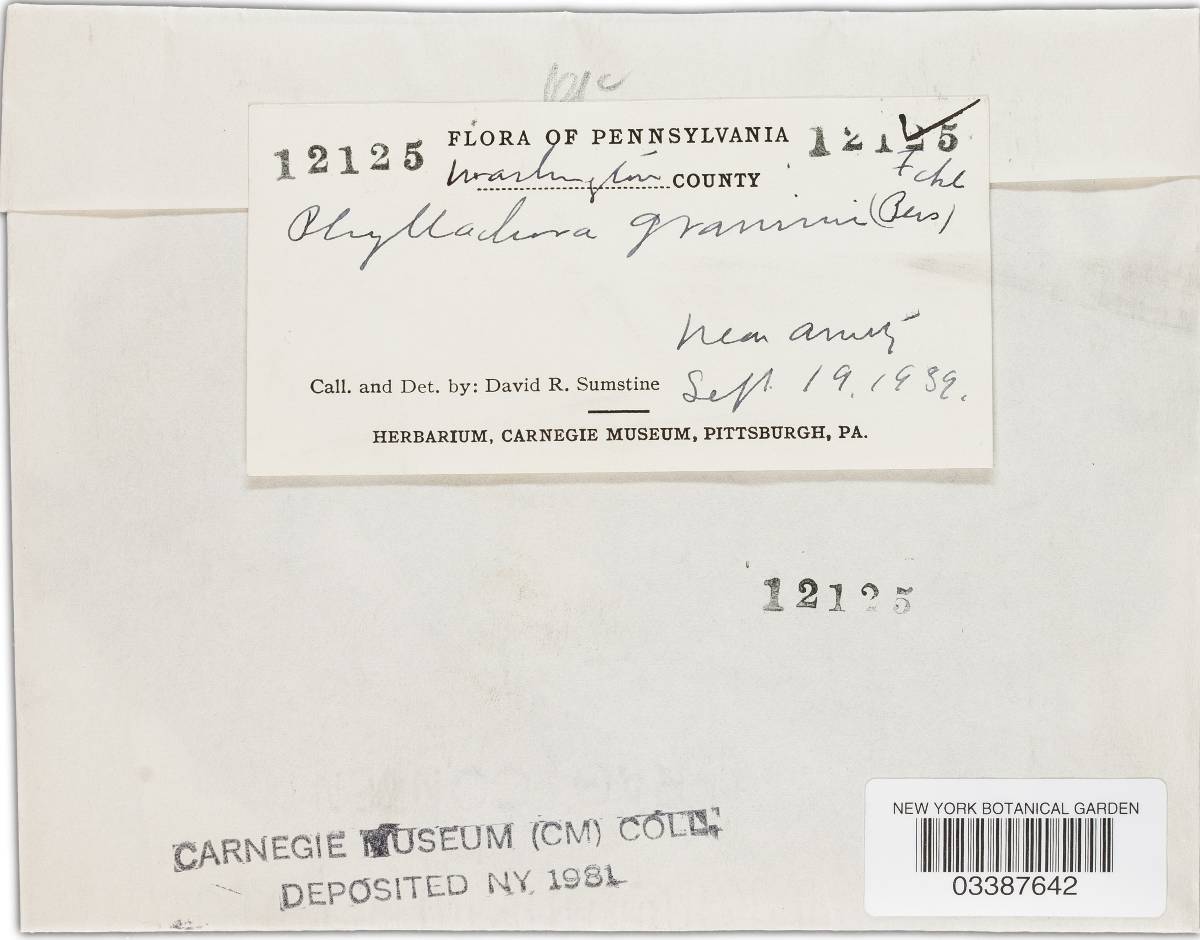 12125 FLORA OF PENNSYLVANIA 12125
Washington COUNTY
Phyllachora graminis (Pers) Fckl
Near Amity
Call. and Det. by: David R. Sumstine Sept. 19, 1939.
HERBARIUM, CARNEGIE MUSEUM, PITTSBURGH, PA.
12125
CARNEGIE MUSEUM (CM) COLL.
DEPOSITED NY, 1981
NEW YORK BOTANICAL GARDEN
03387642